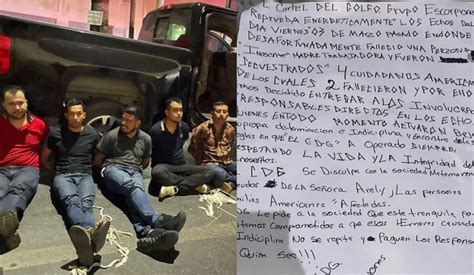 El Cartel DEL GOLFO, GRUPO ESCORPION
REPRUEBA ENERGETICAMENTE LOS ECHOS DEL
DIA VIERNES 03 DE MARZO PASADO EN DONDE
DESAFORTUNADAMENTE FALLECIO UNA PERSONA
INOSENTE MADRE TRABAJADORA Y FUERON
SECUESTRADOS 4 CIUDADANOS AMERICA
DE LOS CUALES 2 FALLECIERON Y POR ELLO
MOS DECIDIDO ENTREGAR A LOS INVOLUCR
RESPONSABLES DIRECTOS EN LOS ECHOS
QUIENES EN TODO MOMENTO ACTUARON BAJO
propia determinacion e Indiciplina
reglas en QUE EL CDG A OPERADO SIEMPRE
RESPETANDO LA VIDA Y LA Integridad
inosentes.
CDG SE Disculpa con la SOCIEDAD Matamorense
DE LA Señora Arely y Las personas
milias Americanas Afectadas.
CDG LE pide a la sociedad QUE este tranquila
temos comprometidos a que esos Errores causados
Indiciplina No se repita y Paguen Los Respons
Quien Sea!!!
CDG.